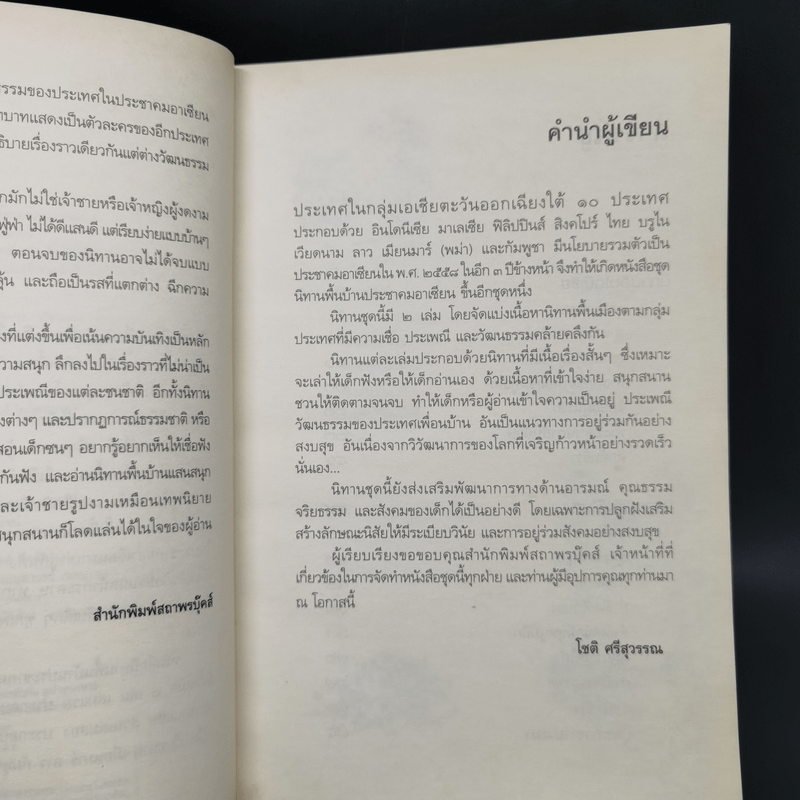 ธรรมของประเทศในประชาคมอาเซียน
บาทแสดงเป็นตัวละครของอีกประเทศ
ธิบายเรื่องราวเดียวกันแต่ต่างวัฒนธรรม
มักไม่ใช่เจ้าชายหรือเจ้าหญิงผู้งดงาม
ฟู่ฟ่า ไม่ได้ดีแสนดี แต่เรียบง่ายแบบบ้านๆ
ตอนจบของนิทานอาจไม่ได้จบแบบ
และถือเป็นรสที่แตกต่าง ฉีกความ
ที่แต่งขึ้นเพื่อเน้นความบันเทิงเป็นหลัก
ความสนุก ลึกลงไปในเรื่องราวที่ไม่น่าเป็น
ประเพณีของแต่ละชนชาติ อีกทั้งนิทาน
ต่างๆ และปรากฏการณ์ธรรมชาติ หรือ
สอนเด็กซนๆ อยากรู้อยากเห็นให้เชื่อฟัง
กันฟัง และอ่านนิทานพื้นบ้านแสนสนุก
ละเจ้าชายรูปงามเหมือนเทพนิยาย
สนุกสนานก็โลดแล่นได้ในใจของผู้อ่าน
สำนักพิมพ์สถาพรบุ๊คส์
คำนำผู้เขียน
ประเทศในกลุ่มเอเชียตะวันออกเฉียงใต้ ๑๐ ประเทศ
ประกอบด้วย อินโดนีเซีย มาเลเซีย ฟิลิปปินส์ สิงคโปร์ ไทย บรูไน
เวียดนาม ลาว เมียนมาร์ (พม่า) และกัมพูชา มีนโยบายรวมตัวเป็น
ประชาคมอาเซียนใน พ.ศ. ๒๕๕๘ ในอีก ๓ ปีข้างหน้า จึงทำให้เกิดหนังสือชุด
นิทานพื้นบ้านประชาคมอาเซียน ขึ้นอีกชุดหนึ่ง
นิทานชุดนี้มี ๒ เล่ม โดยจัดแบ่งเนื้อหานิทานพื้นเมืองตามกลุ่ม
ประเทศที่มีความเชื่อ ประเพณี และวัฒนธรรมคล้ายคลึงกัน
นิทานแต่ละเล่มประกอบด้วยนิทานที่มีเนื้อเรื่องสั้นๆ ซึ่งเหมาะ
จะเล่าให้เด็กฟังหรือให้เด็กอ่านเอง ด้วยเนื้อหาที่เข้าใจง่าย สนุกสนาน
ชวนให้ติดตามจนจบ ทำให้เด็กหรือผู้อ่านเข้าใจความเป็นอยู่ ประเพณี
วัฒนธรรมของประเทศเพื่อนบ้าน อันเป็นแนวทางการอยู่ร่วมกันอย่าง
สงบสุข อันเนื่องจากวิวัฒนาการของโลกที่เจริญก้าวหน้าอย่างรวดเร็ว
นั่นเอง...
นิทานชุดนี้ยังส่งเสริมพัฒนาการทางด้านอารมณ์ คุณธรรม
จริยธรรม และสังคมของเด็กได้เป็นอย่างดี โดยเฉพาะการปลูกฝังเสริม
สร้างลักษณะนิสัยให้มีระเบียบวินัย และการอยู่ร่วมสังคมอย่างสงบสุข
ผู้เรียบเรียงขอขอบคุณสำนักพิมพ์สถาพรบุ๊คส์ เจ้าหน้าที่ที่
เกี่ยวข้องในการจัดทำหนังสือชุดนี้ทุกฝ่าย และท่านผู้มีอุปการคุณทุกท่านมา
ณ โอกาสนี้
โชติ ศรีสุวรรณ